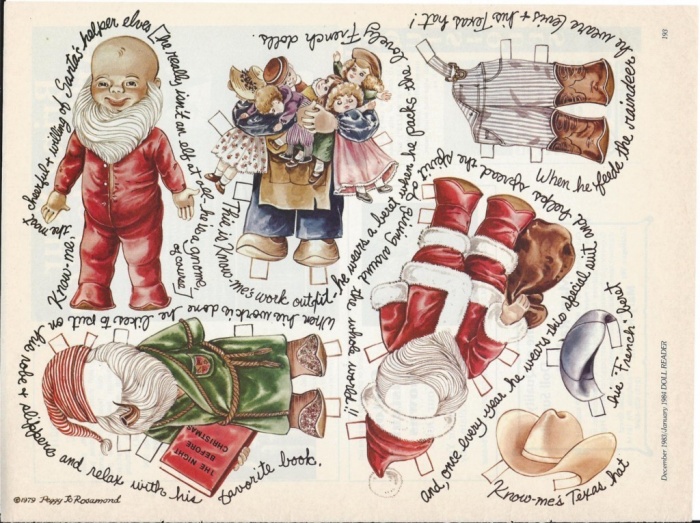 Know-me: the most cheerful & willing of Santa's helper elves
[he really isn't an elf at all - he is a gnome, of course]
This is Know-me's work outfit -
when he packs the lovely French dolls.
he wears a beret
When he feeds the raindeer he wears Levis & his Texas hat!
When his work is done he likes to put on his robe & slippers and relax with his favorite book.
THE NIGHT
BEFORE
CHRISTMAS
and, once every year he wears this special suit and helps spread the spirit of giving around the whole world!!
his 'French' beret
Know-me's Texas hat
©1979 Peggy Jo Rosamond
December 1983/January 1984 DOLL READER
193